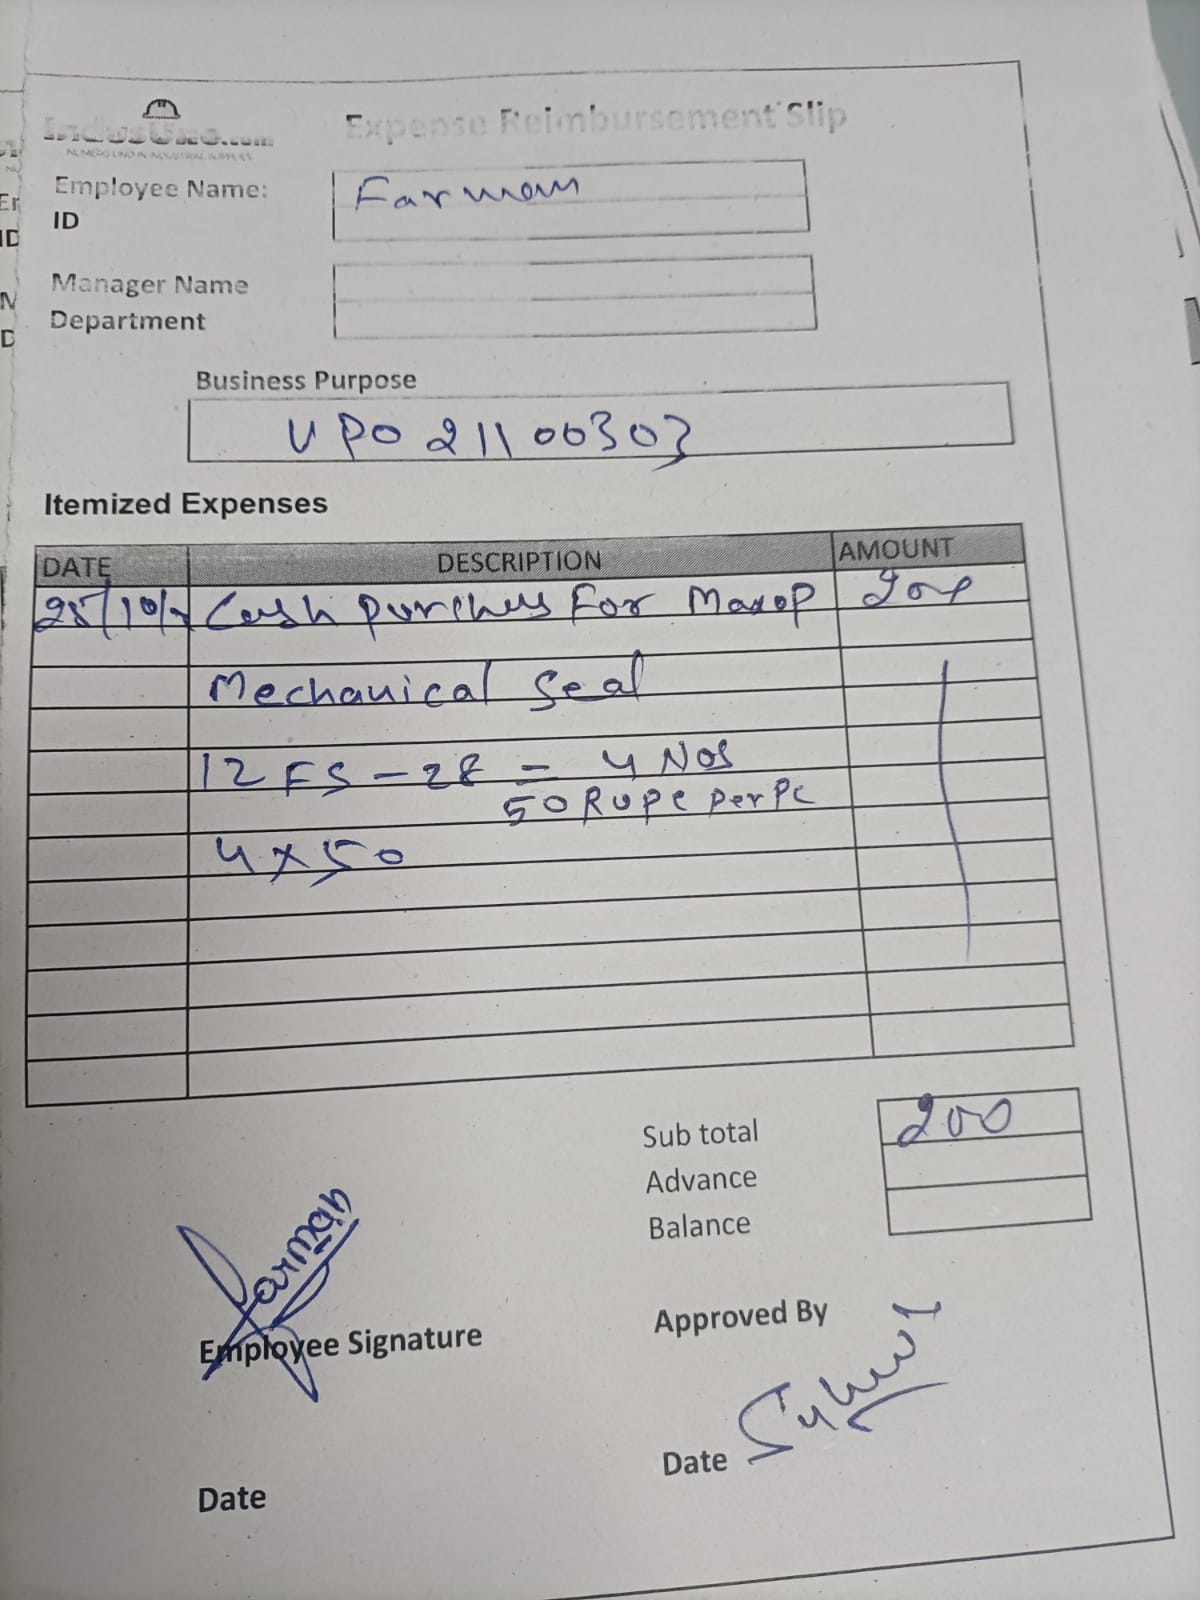 IndusUno.com
NUMERO UNO IN INDUSTRIAL SUPPLIES
Expense Reimbursement Slip
Employee Name: Farman
ID
Manager Name
Department
Business Purpose
UPO 21100303
Itemized Expenses
DATE DESCRIPTION AMOUNT
25/10/ Cash Purches For Maxop 200
Mechanical Seal
12 FS - 28 = 4 Nos
50 Rupe Per Pc
4 x 50
Sub total 200
Advance
Balance
Farman
Employee Signature
Approved By
Date
Date